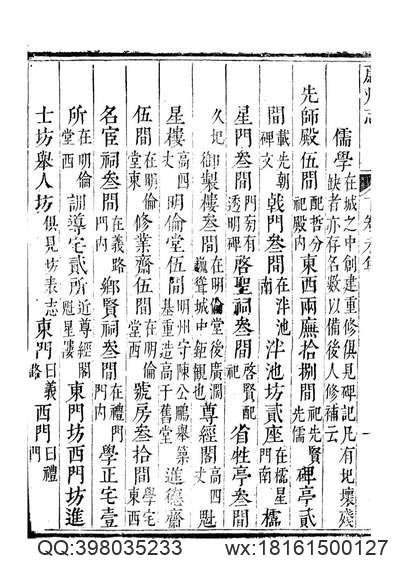 州志
儒學在城之中創建重修俱見碑記凡有圮壞殘缺者亦存名數以備後人修補云
先師殿伍間配哲分祀殿内東西兩廡拾捌間祀先賢先儒碑亭貳
間載先朝碑文㦸門叁間在泮池南泮池坊貳座在櫺星門南櫺
星門叁間門南有透明碑啓聖祠叁間啓賢配祀省牲亭叁間
久圮御製樓叁間在明倫堂後廣濶巍聳城中鉅觀也尊經閣高四丈魁
星樓高四丈明倫堂伍間明州守陳公鵬舉基重造高于舊堂進德齋
伍間在明倫堂東修業齋伍間在明倫堂西號房叁拾間學宅東西
名宦祠叁間在義路門内鄉賢祠叁間在禮門門内學正宅壹
所在明倫堂西訓導宅貳所近尊經閣魁星樓東門坊西門坊進
士坊舉人坊俱見坊表志東門曰義路西門曰禮門
QQ:398035233
wx:18161500127